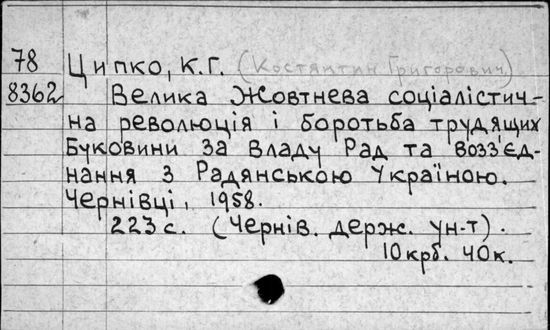 78 Ципко, К.Г. (Костянтин Григорович)
8362 Велика Жовтнева соціалістич-
на революція і боротьба трудящих
Буковини за владу Рад та возз'єд-
нання з Радянською Україною.
Чернівці, 1958.
223 с. (Чернів. держ. ун-т).
10 крб. 40 к.